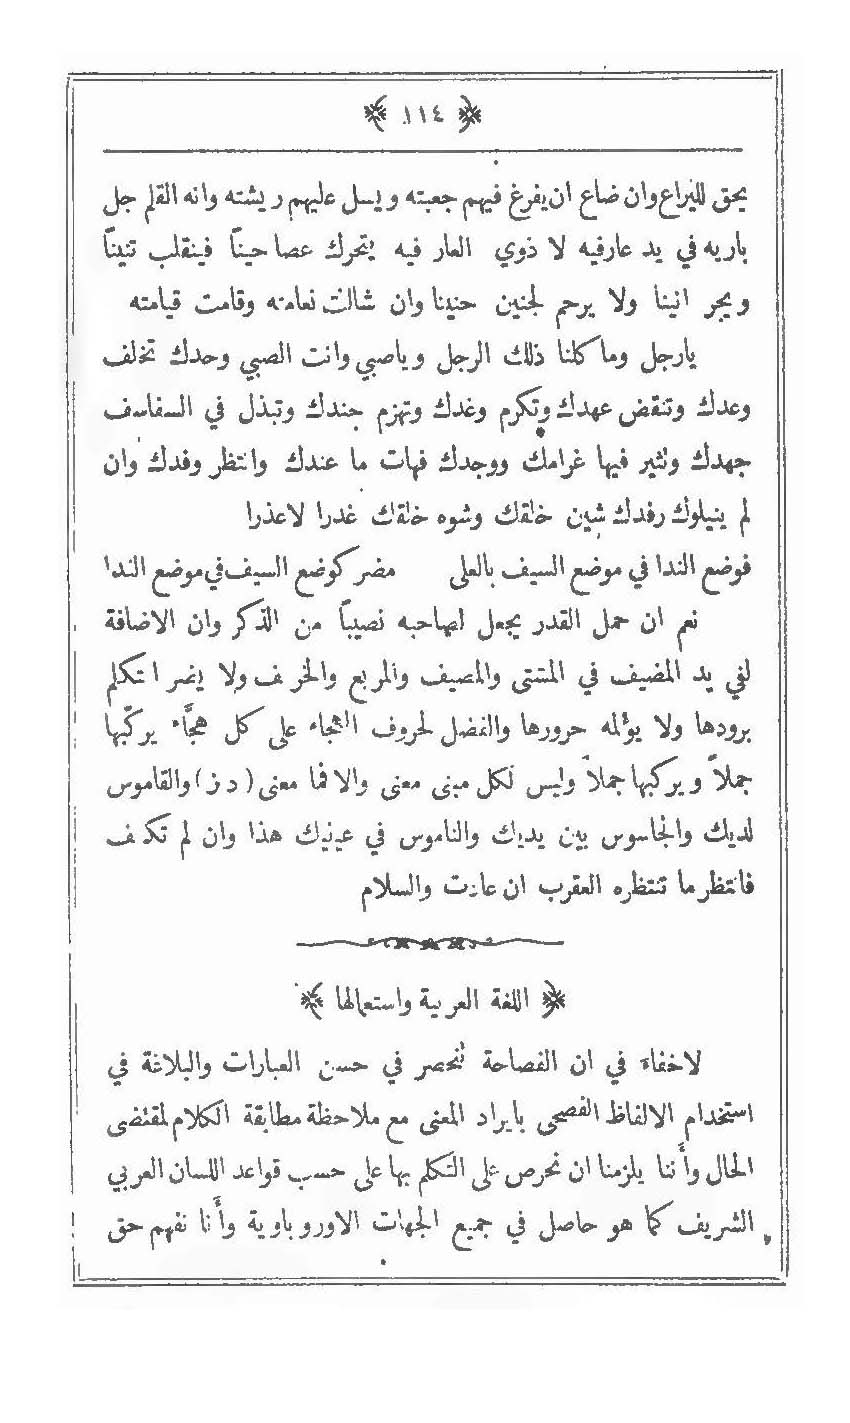 ﴿ ١١٤ ﴾
يحق لليراع وان ضاع ان يفرغ فيهم جعبته ويسل عليهم ريشته وانه القلم جل
باريه في يد عارفيه لا ذوي العار فيه يتحرك عصا حيناً فينقلب تنيناً
ويجر انينا ولا يرحم لجنين حنينا وان شالت نعامته وقامت قيامته
يارجل وما كلنا ذلك الرجل وياصبي وانت الصبي وحدك تخلف
وعدك وتنقض عهدك وتكرم وغدك وتهزم جندك وتبذل في السفاسف
جهدك وتثير فيها غرامك ووجدك فهات ما عندك وانتظر وفدك وان
لم ينيلوك رفدك شين خلقك وشوه خلقك غدرا لاعذرا
فوضع الندا في موضع السيف بالعلى مضر كوضع السيف في موضع الندا
نعم ان حمل القدر يجعل لصاحبه نصيباً من الذكر وان الاضافة
لفي يد المضيف في المشتى والمصيف والمربع والخريف ولا يضر المتكلم
برودها ولا يؤلمه حرورها والفضل لحروف الهجاء على كل هجَّاء يركّبها
جملاً ويركبها جملاً وليس لكل مبنى معنى والا فما معنى (دز) والقاموس
لديك والجاسوس بين يديك والناموس في عينيك هذا وان لم تكف
فانتظر ما تنتظره العقرب ان عادت والسلام
﴿ اللغة العربية واستعمالها ﴾
لاخفاء في ان الفصاحة تنحصر في حسن العبارات والبلاغة في
استخدام الالفاظ الفصحى بايراد المعنى مع ملاحظة مطابقة الكلام لمقتضى
الحال وأننا يلزمنا ان نحرص على التكلم بها على حسب قواعد اللسان العربي
الشريف كما هو حاصل في جميع الجهات الاوروباوية وأنا نفهم حق